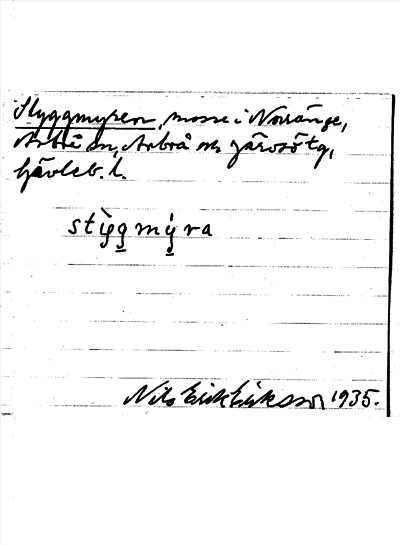 Styggmyren, mosse i Norränge,
Arbrå sn, Arbrå och Järvsö tg,
Gävleb. l.
stỳgg mý ra
Nils Erik Eriksson 1935.